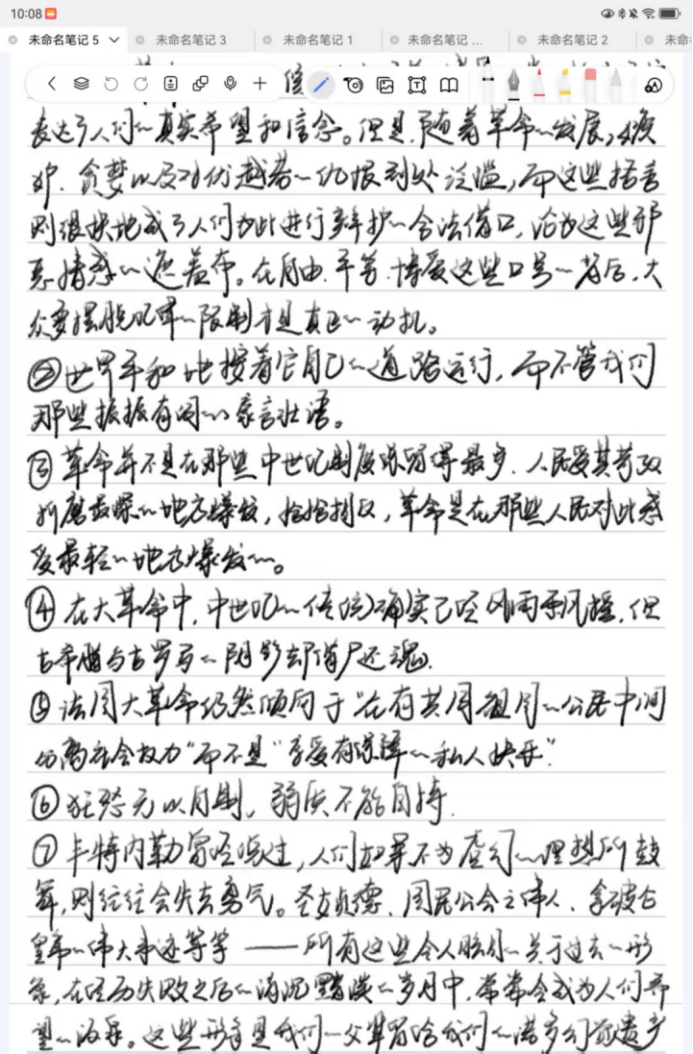 10:08
未命名笔记 5 未命名笔记 3 未命名笔记 1 未命名笔记 ... 未命名笔记 2 未命名
表达了人们的真实希望和信念。但是,随着革命的发展,嫉
妒、贪婪以及对优越者的仇恨到处泛滥,而这些语言
则很快地成了人们为此进行辩护的合法借口,沦为这些邪
恶情感的遮羞布。在自由、平等、博爱这些口号的背后,大
众要摆脱纪律的限制才是真正的动机。
②世界平和地按着它自己的道路运行,而不管我们
那些振振有词的豪言壮语。
③革命并不是在那些中世纪制度保留得最多、人民受其苛政
折磨最深的地方爆发,恰恰相反,革命是在那些人民对此感
受最轻的地方爆发的。
④在大革命中,中世纪的传统确实已经风雨飘摇,但
古希腊与古罗马的阴影却借尸还魂。
⑤法国大革命仍然倾向于“在有共同祖国的公民中间
分离社会权力”而不是“享受有保障的私人快乐”
⑥狂怒无以自制,弱质不能自持。
⑦卡特内勒曾经说过,人们如果不为虚幻的理想所鼓
舞,则往往会失去勇气。圣女贞德、国民公会之伟人、拿破仑
皇帝的伟大事迹等等——所有这些令人的关于过去的形
象,在经历失败之后的消沉黯淡的岁月中,常常会成为人们希
望的源泉。这些形象是我们的父辈留给我们的诸多幻遗产